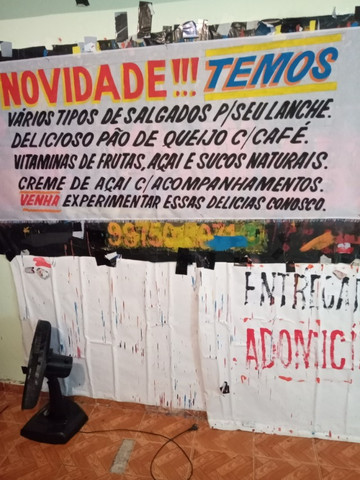 NOVIDADE!!! TEMOS
VÁRIOS TIPOS DE SALGADOS P/SEU LANCHE.
DELICIOSO PÃO DE QUEIJO C/CAFÉ.
VITAMINAS DE FRUTAS, AÇAI E SUCOS NATURAIS.
CREME DE AÇAI C/ACOMPANHAMENTOS.
VENHA EXPERIMENTAR ESSAS DELICIAS CONOSCO.
ENTREGA
ADOMICI